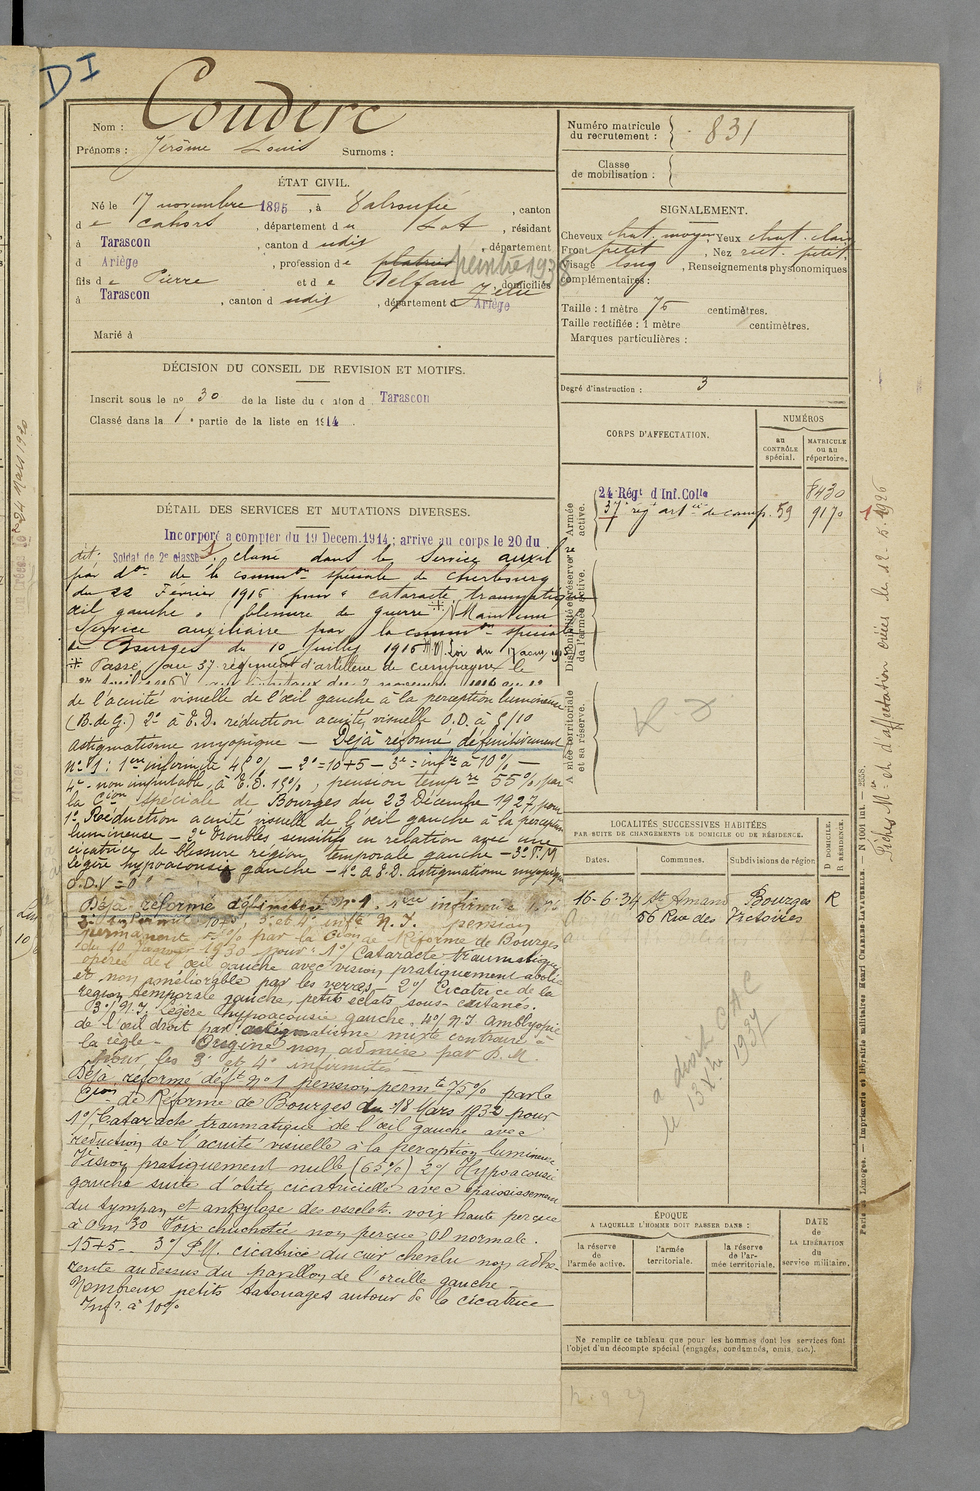 DI
Nom : Couderc
Prénoms : Jérôme Louis Surnoms :
Numéro matricule du recrutement : 831
Classe de mobilisation :
ÉTAT CIVIL.
Né le 17 novembre 1895, à Valroufié, canton
de Cahors, département du Lot, résidant
à Tarascon, canton dudit, département
d Ariège, profession de platrier peintre 1938
fils de Pierre et de Delfau Julie domiciliés
à Tarascon, canton dudit, département d Ariège
Marié à
SIGNALEMENT.
Cheveux chat. moyen, Yeux chat. clair
Front petit, Nez rect. petit
Visage long, Renseignements physionomiques
complémentaires :
Taille : 1 mètre 75 centimètres.
Taille rectifiée : 1 mètre centimètres.
Marques particulières :
Degré d'instruction : 3
DÉCISION DU CONSEIL DE REVISION ET MOTIFS.
Inscrit sous le no 30 de la liste du canton d Tarascon
Classé dans la 1e partie de la liste en 1914.
CORPS D'AFFECTATION.
NUMÉROS
au CONTRÔLE spécial.
MATRICULE ou au répertoire.
Armée active.
24 Régt d'Inf. Colle 8430
37e régt artie de camp. 59 9170
Disponibilité et réserve de l'armée active.
Armée territoriale et sa réserve.
DÉTAIL DES SERVICES ET MUTATIONS DIVERSES.
Incorporé a compter du 19 Decem. 1914 ; arrivé au corps le 20 du
dit. Soldat de 2e classe. classé dans le service auxilre
par don de la common spéciale de Cherbourg
du 22 Février 1916 pour "cataracte traumatique
œil gauche" (blessure de guerre) Maintenu
Service auxiliaire par la common spéciale
de Bourges du 10 Juillet 1916
Passé au 37e régiment d'artillerie de campagne le
de l'acuité visuelle de l'œil gauche à la perception lumineuse
(B. de G.) 2o à E.D. réduction acuité visuelle O.D. à 5/10
astigmatisme myopique — Déjà réformé définitivement
No 1 : 1ère infirmité 45% — 2o = 10+5 — 3e = infté à 10% —
4e non imputable, à E.D. 15%, pension tempre 55%, par
la Cion spéciale de Bourges du 23 Décembre 1927, pour
1o Réduction acuité visuelle de l'œil gauche à la perception
lumineuse — 2o Troubles sensitifs en relation avec une
cicatrice de blessure région temporale gauche — 3o P.M
légère hypoacousie gauche — 4o à E.D. Astigmatisme myopique
O.D.V = 0
Déjà réformé définitivt No 1. 1ère infirmité
pension
permanente par la Cion de Réforme de Bourges
du 10 janvier 1930 pour : 1o/ Cataracte traumatique
opérée de l'œil gauche avec vision pratiquement abolie
et non améliorable par les verres — 2o/ Cicatrice de la
région temporale gauche, petits éclats sous-cutanés.
3o/ N.I. légère hypoacousie gauche, 4o/ N.I. Amblyopie
de l'œil droit par astigmatisme mixte contraire à
la règle — Origine non admise par P.M.
pour les 3e et 4e infirmités —
Déjà réformé déft no 1 pension permte 75% par la
Cion de Réforme de Bourges du 18 Mars 1932 pour
1o/ Cataracte traumatique de l'œil gauche avec
réduction de l'acuité visuelle à la perception lumineuse
Vision pratiquement nulle (65%) 2o/ Hypoacousie
gauche suite d'otite cicatricielle avec épaississement
du tympan et ankylose des osselets. voix haute perçue
à 0m30 Voix chuchotée non perçue OD normale.
15+5 — 3o/ P.M. cicatrice du cuir chevelu non adhé-
rente au dessus du pavillon de l'oreille gauche —
Nombreux petits tatouages autour de la cicatrice
Infr. à 10%
LOCALITÉS SUCCESSIVES HABITÉES
PAR SUITE DE CHANGEMENTS DE DOMICILE OU DE RÉSIDENCE.
Dates. Communes. Subdivisions de région
D DOMICILE. R RÉSIDENCE.
16-6-34 St Amand Bourges R
56 Rue des Victoires
a droit CAC
le 13 1937
ÉPOQUE
A LAQUELLE L'HOMME DOIT PASSER DANS :
la réserve de l'armée active.
l'armée territoriale.
la réserve de l'armée territoriale.
DATE de LA LIBÉRATION du service militaire.
Ne remplir ce tableau que pour les hommes dont les services font
l'objet d'un décompte spécial (engagés, condamnés, omis, etc.).
Paris et Limoges. — Imprimerie et librairie militaires Henri CHARLES-LAVAUZELLE. — N 1001 int. — 2558.
Fiches Mle et d'affectation créées le 12-5-1926